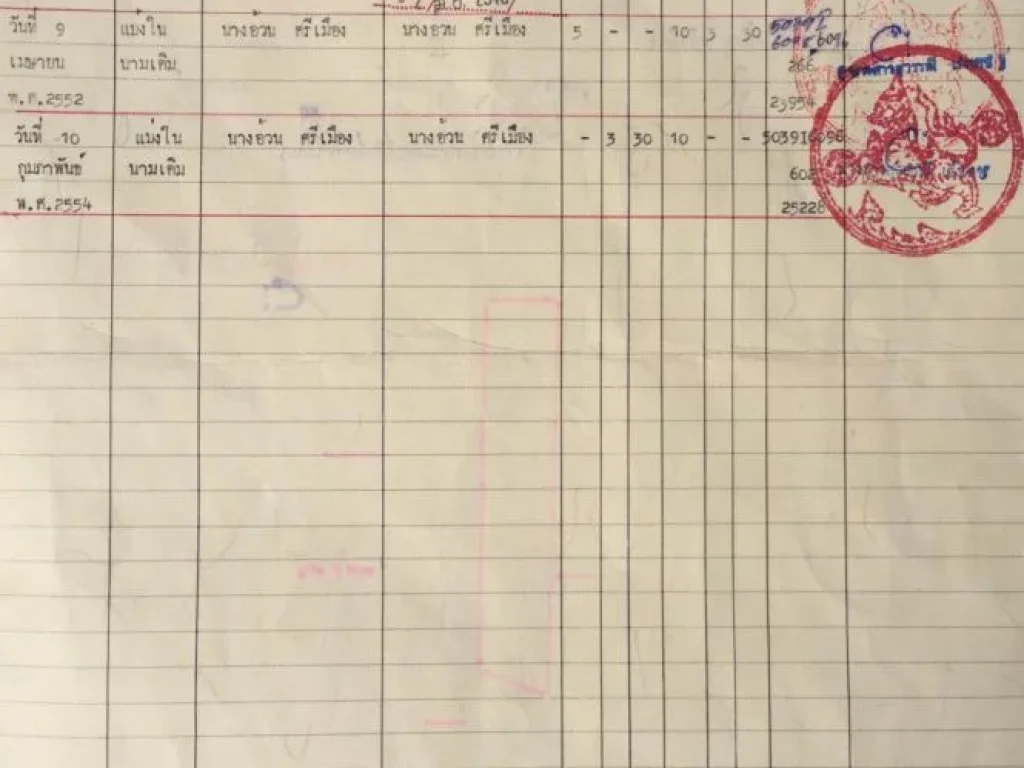 วันที่ 9 แบ่งใน นางอ้วน ศรีเมือง นางอ้วน ศรีเมือง 5 - - 10 3 30
เมษายน นามเดิม 266
พ.ศ.2552 23954
วันที่ 10 แบ่งใน นางอ้วน ศรีเมือง นางอ้วน ศรีเมือง - 3 30 10 - - 5039I6096
กุมภาพันธ์ นามเดิม 602
พ.ศ.2554 25228